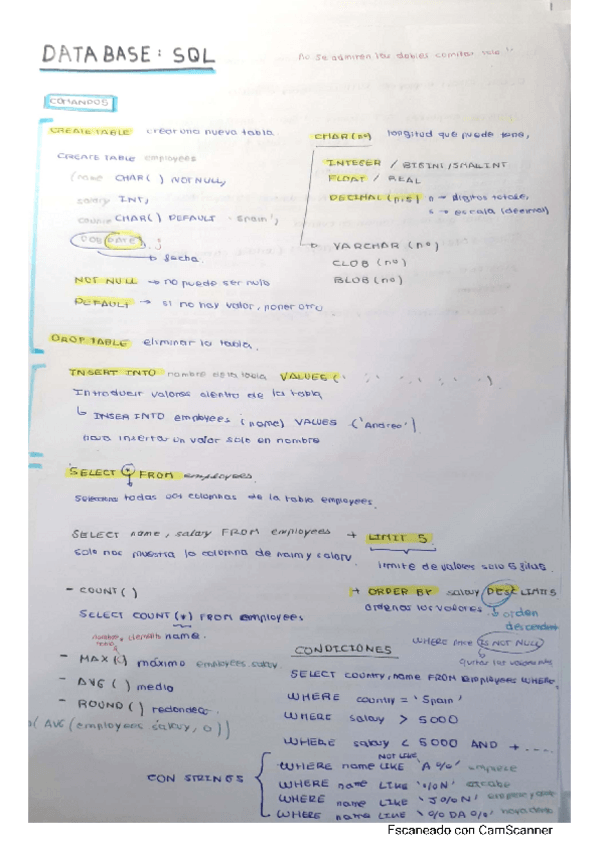 DATABASE: SQL
No se admiten las dobles comillas, solo ''
COMANDOS
CREATE TABLE crear una nueva tabla.
CREATE TABLE employees
(name CHAR( ) NOT NULL,
salary INT,
CHAR( ) DEFAULT 'Spain',
DOB DATE);
fecha
NOT NULL → no puede ser nulo
DEFAULT → si no hay valor, poner otro
CHAR(nº) longitud que puede tener,
INTEGER / BIGINT/SMALLINT
FLOAT / REAL
DECIMAL (p,s) → digitos totales,
s → escala (decimal)
VARCHAR (nº)
CLOB (nº)
BLOB (nº)
DROP TABLE eliminar la tabla.
INSERT INTO nombre de la tabla VALUES (' )
Introducir valores dentro de la tabla
↳ INSER INTO employees (name) VALUES ('Andrea')
para insertar un valor solo en nombre
SELECT * FROM employees.
todas las columnas de la tabla employees.
SELECT name, salary FROM employees + LIMIT 5
solo nos muestra la columna de name y salary.
limite de valores solo 5 filas.
- COUNT ( )
SELECT COUNT (*) FROM employees
name.
- MAX ( ) máximo employees.salary.
- AVG ( ) medio
- ROUND ( ) redondeo
(AVG (employees salary, 0))
+ ORDER BY salary DESC LIMIT 5
ordenas los valores.
orden
descendente
WHERE IS NOT NULL
quitar los valores
CONDICIONES
SELECT country, name FROM employees WHERE
WHERE country = 'Spain'
WHERE salary > 5000
WHERE salary < 5000 AND + ....
NOT LIKE
CON STRINGS
WHERE name LIKE 'A%' empiece
WHERE name LIKE '%N' acabe
WHERE name LIKE 'J%N'
WHERE name LIKE '%DA%'
Escaneado con CamScanner